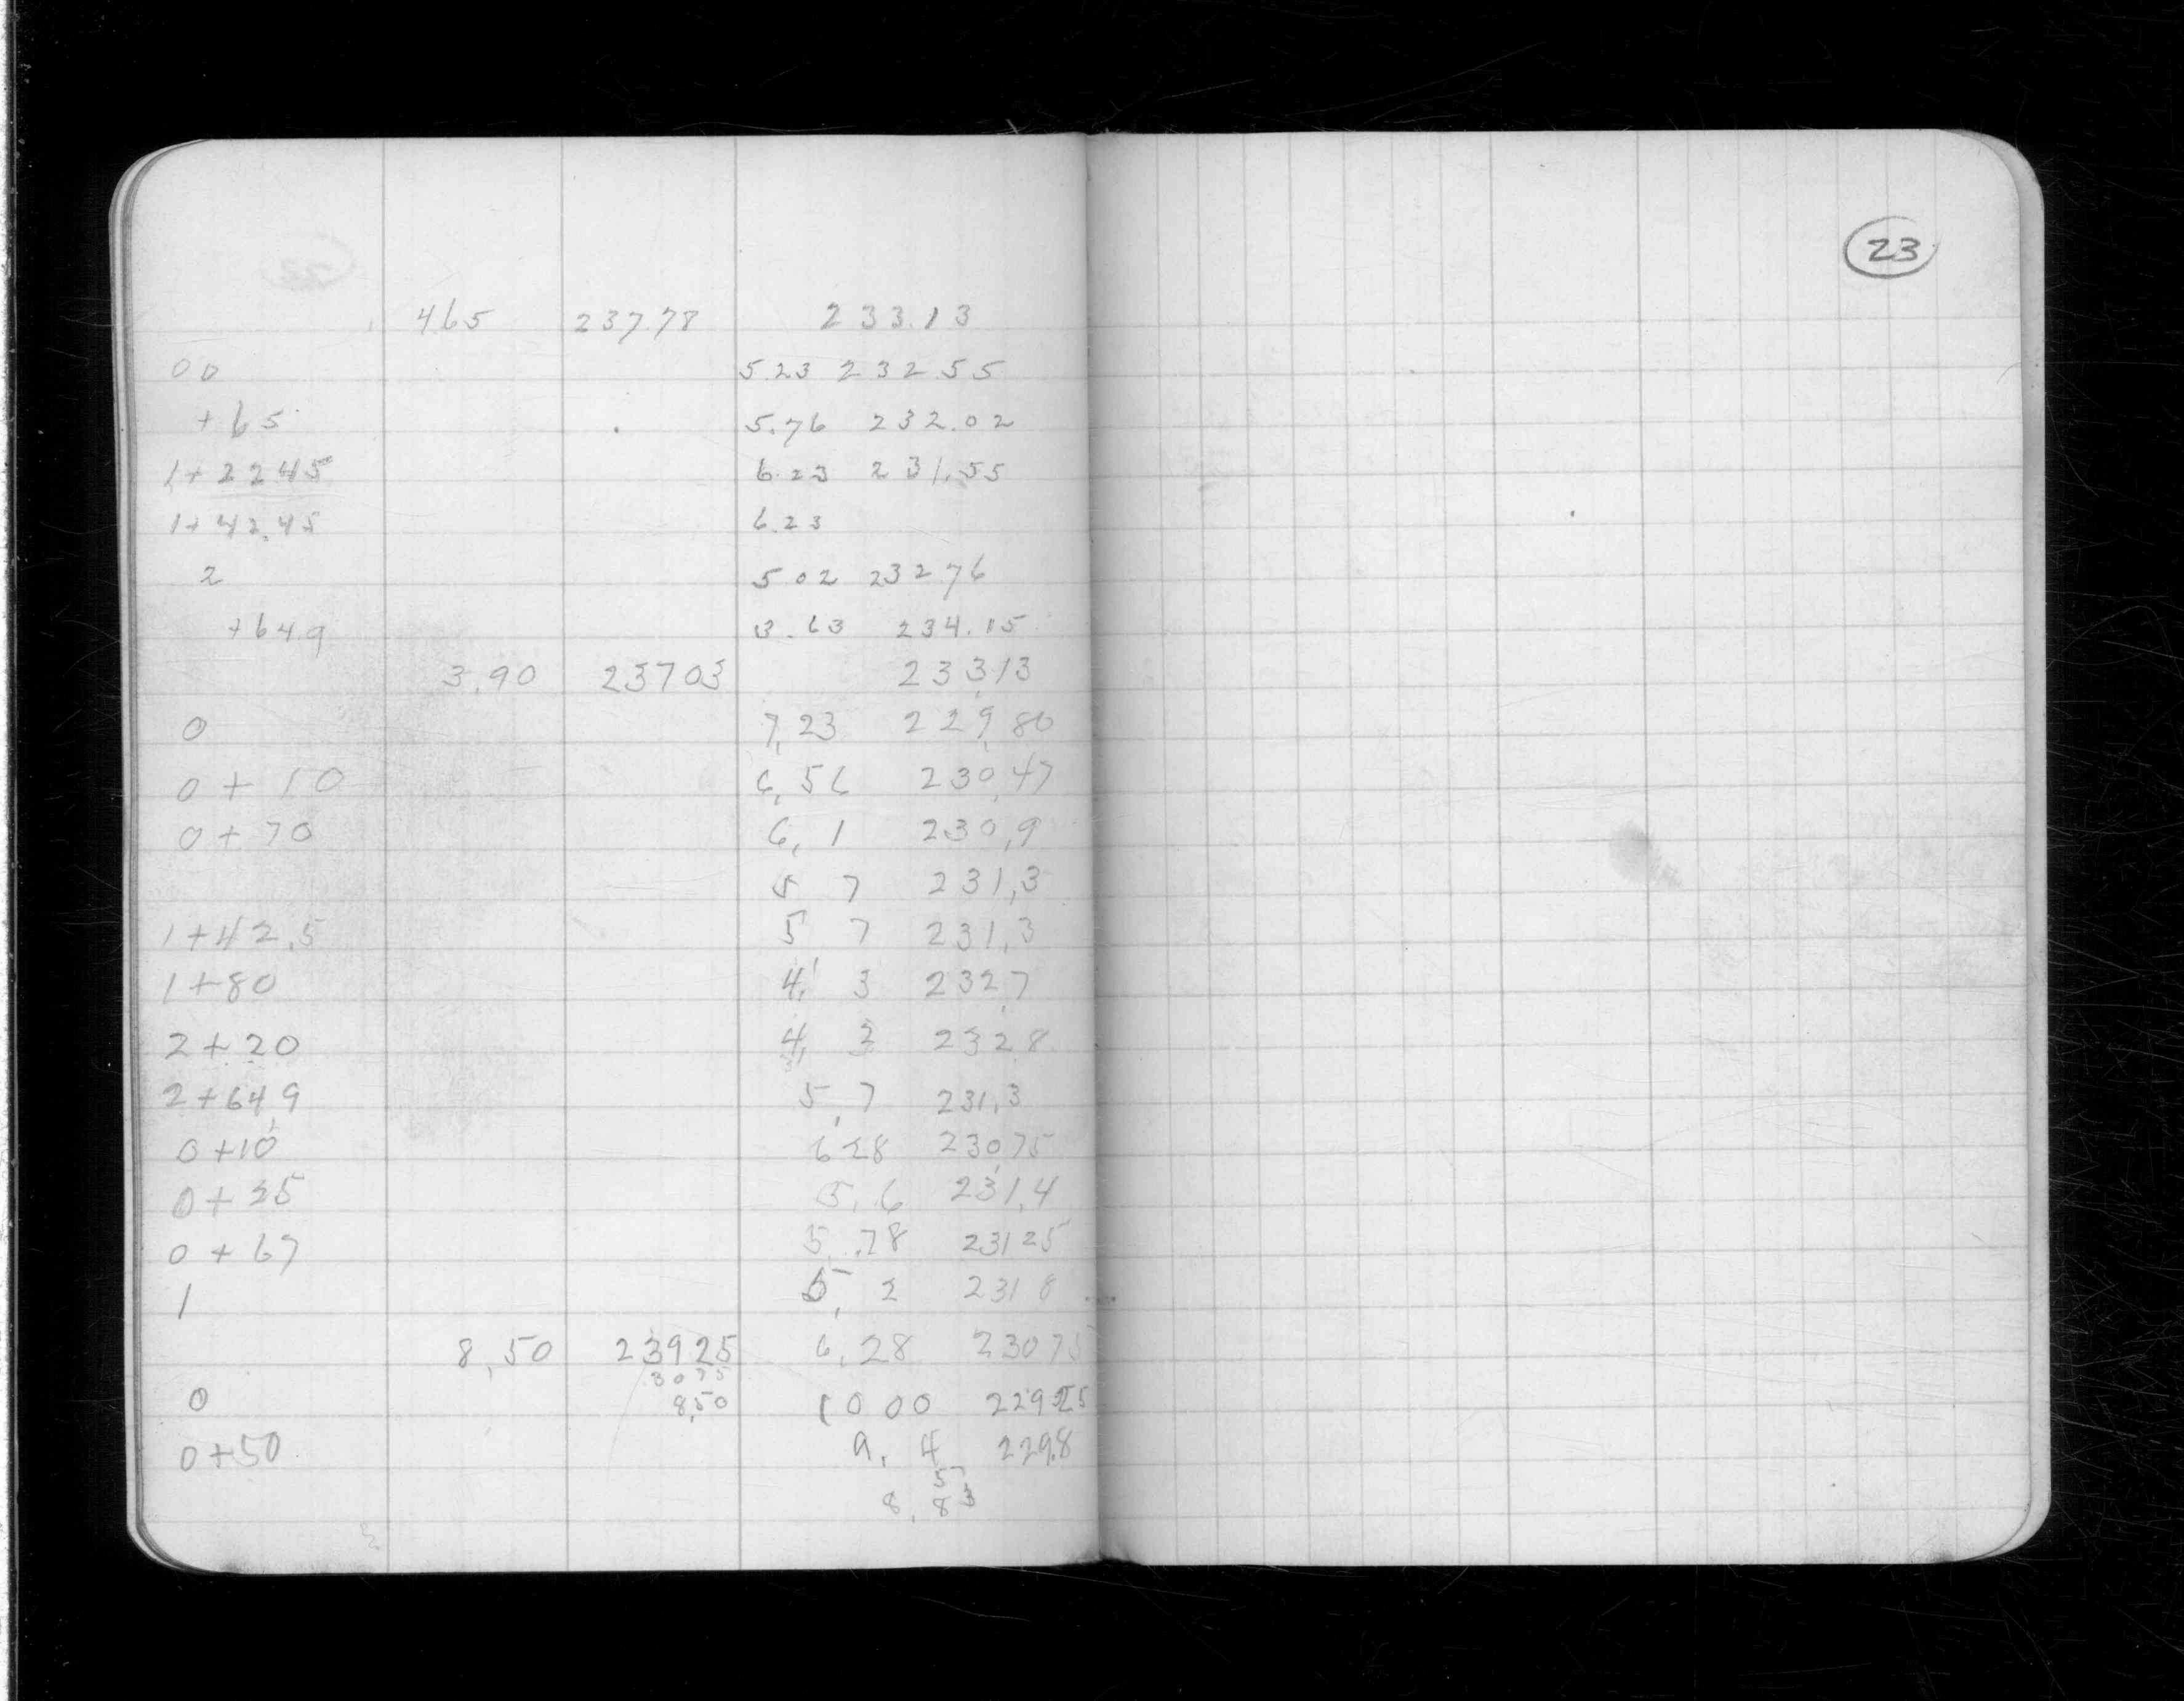 23
465 237.78 233.13
00 5.23 232.55
+65 5.76 232.02
1+2245 6.23 231.55
1+42.45 6.23
2 5.02 23276
+64.9 3.63 234.15
3.90 23703 23313
0 7,23 229,80
0+10 6,56 230,47
0+70 6,1 230,9
5 7 231,3
1+42.5 5 7 231,3
1+80 4, 3 232,7
2+20 4, 2328
2+64,9 5,7 231,3
0+10 628 23075
0+25 5,6 231,4
0+67 5.78 23125
1 5, 2 2318
8,50 23925 6,28 23075
3075
0 8,50 1000 22925
0+50 9. 4 229.8
5
8, 83